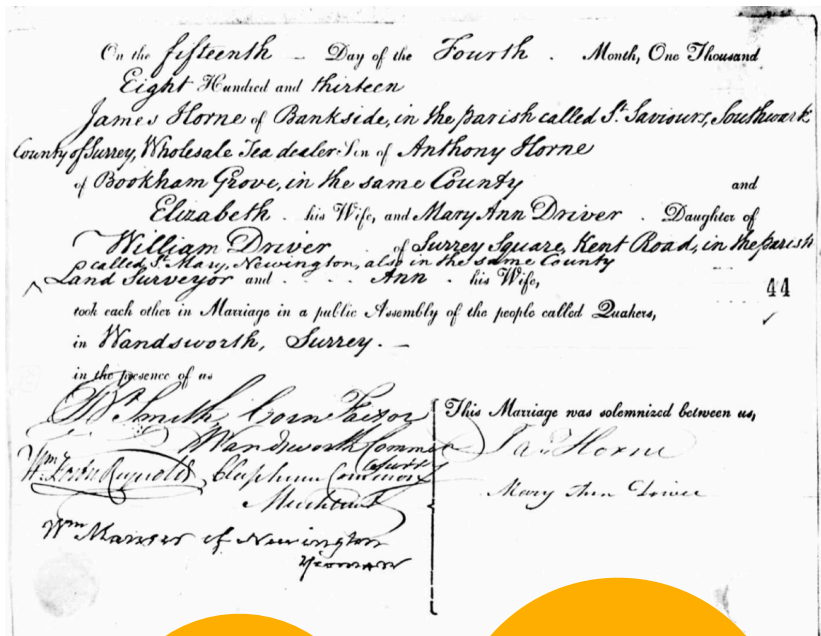 On the fifteenth – Day of the Fourth . Month, One Thousand
Eight Hundred and thirteen
James Horne of Bankside, in the parish called St. Saviours, Southwark
County of Surrey, Wholesale Tea dealer Son of Anthony Horne
of Bookham Grove, in the same County and
Elizabeth . his Wife, and Mary Ann Driver . Daughter of
William Driver of Surrey Square, Kent Road, in the parish
called St. Mary, Newington, also in the same County
Land Surveyor and . . . . Ann . his Wife,
44
took each other in Marriage in a public Assembly of the people called Quakers,
in Wandsworth, Surrey. –
in the presence of us
Wm Smith Corn Factor
Wandsworth Common
Surry
Wm Reynolds, Clapham Common
Merchant
Wm Manser of Newington
Yeoman
This Marriage was solemnized between us,
Jas Horne
Mary Ann Driver